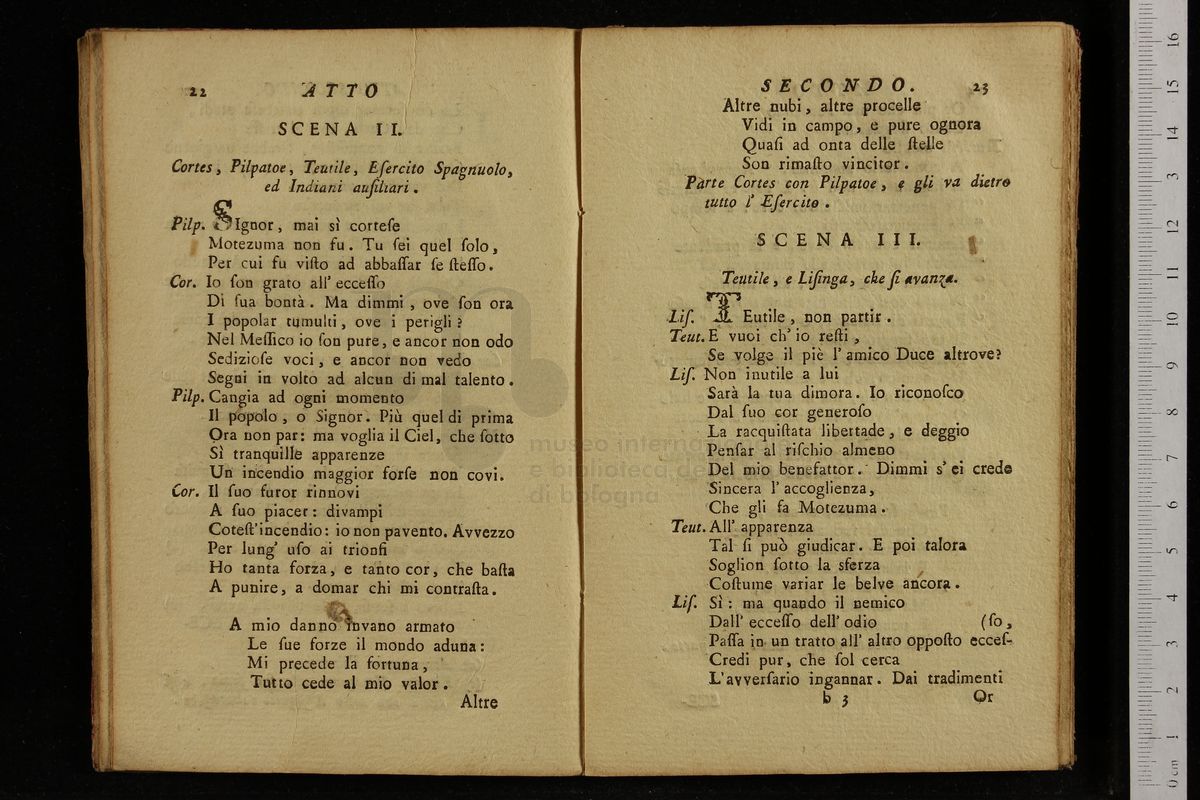 22 ATTO
SCENA II.
Cortes, Pilpatoe, Teutile, Eſercito Spagnuolo,
ed Indiani auſiliari.
Pilp. SIgnor, mai sì corteſe
Motezuma non fu. Tu ſei quel ſolo,
Per cui fu viſto ad abbaſſar ſe ſteſſo.
Cor. Io ſon grato all' ecceſſo
Di ſua bontà. Ma dimmi, ove ſon ora
I popolar tumulti, ove i perigli?
Nel Meſſico io ſon pure, e ancor non odo
Sedizioſe voci, e ancor non vedo
Segni in volto ad alcun di mal talento.
Pilp. Cangia ad ogni momento
Il popolo, o Signor. Più quel di prima
Ora non par: ma voglia il Ciel, che ſotto
Sì tranquille apparenze
Un incendio maggior forſe non covi.
Cor. Il ſuo furor rinnovi
A ſuo piacer: divampi
Coteſt' incendio: io non pavento. Avvezzo
Per lung' uſo ai trionfi
Ho tanta forza, e tanto cor, che baſta
A punire, a domar chi mi contraſta.
A mio danno invano armato
Le ſue forze il mondo aduna:
Mi precede la fortuna,
Tutto cede al mio valor.
Altre
SECONDO. 23
Altre nubi, altre procelle
Vidi in campo, e pure ognora
Quaſi ad onta delle ſtelle
Son rimaſto vincitor.
Parte Cortes con Pilpatoe, e gli va dietro
tutto l' Eſercito.
SCENA III.
Teutile, e Liſinga, che ſi avanza.
Liſ. TEutile, non partir.
Teut. E vuoi ch' io reſti,
Se volge il piè l' amico Duce altrove?
Liſ. Non inutile a lui
Sarà la tua dimora. Io riconoſco
Dal ſuo cor generoſo
La racquiſtata libertade, e deggio
Penſar al riſchio almeno
Del mio benefattor. Dimmi s' ei crede
Sincera l' accoglienza,
Che gli fa Motezuma.
Teut. All' apparenza
Tal ſi può giudicar. E poi talora
Soglion ſotto la sferza
Coſtume variar le belve ancora.
Liſ. Sì: ma quando il nemico
Dall' ecceſſo dell' odio (ſo,
Paſſa in un tratto all' altro oppoſto ecceſ-
Credi pur, che ſol cerca
L' avverſario ingannar. Dai tradimenti
b 3 Or
museo interna
e biblioteca de
di bologna
0 cm 1 2 3 4 5 6 7 8 9 10 11 12 13 14 15 16